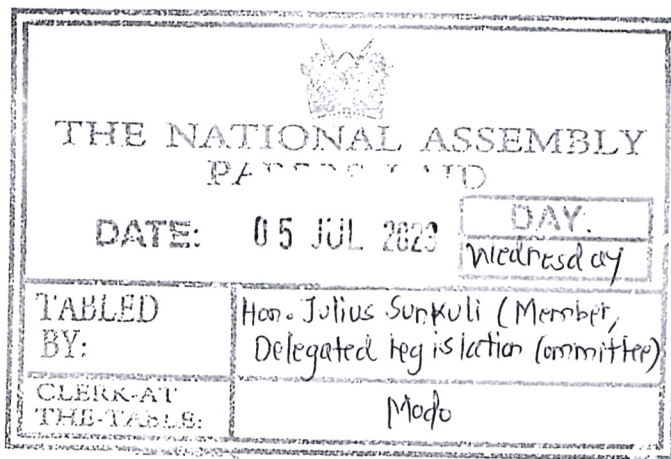 THE NATIONAL ASSEMBLY
PAPERS LAID
DATE: 05 JUL 2023
DAY:
Wednesday
TABLED
BY:
Hon. Julius Sunkuli (Member,
Delegated Legislation Committee)
CLERK-AT
THE-TABLE: